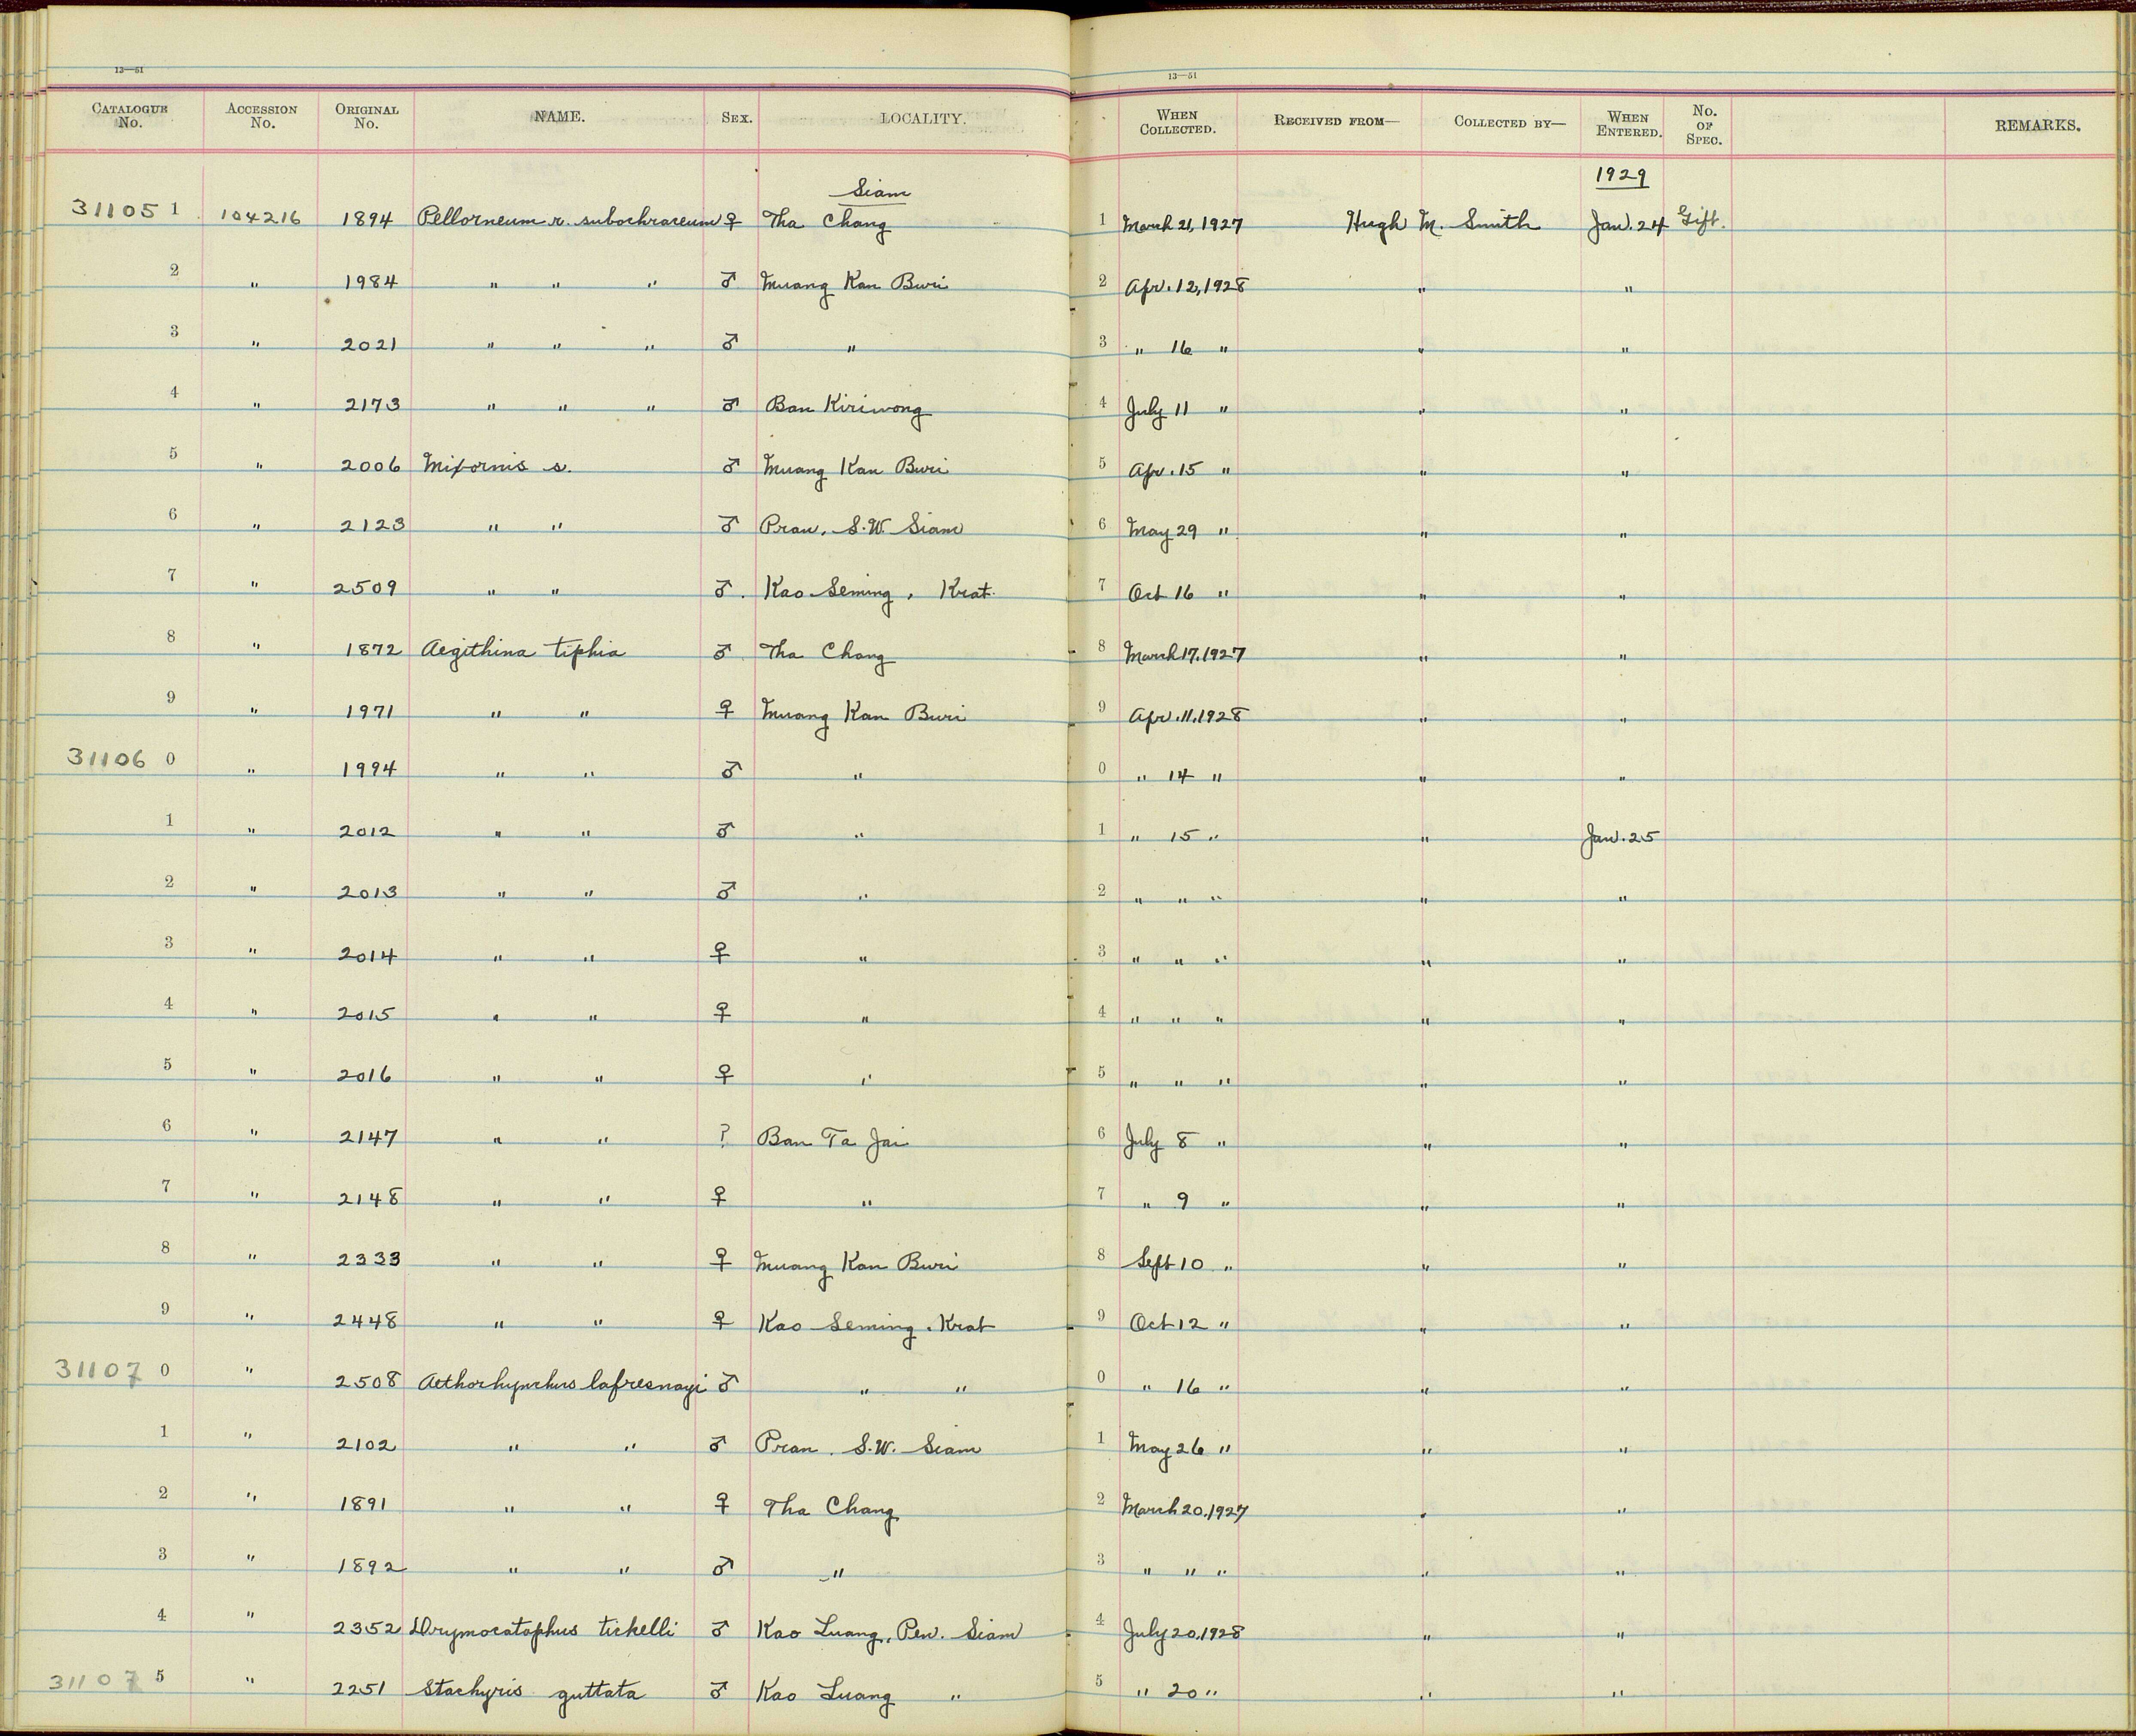 13—51 13—51
CATALOGUE No. ACCESSION No. ORIGINAL No. NAME. SEX. LOCALITY. WHEN COLLECTED. RECEIVED FROM— COLLECTED BY— WHEN ENTERED. No. OF SPEC. REMARKS.
Siam 1929
31105 1 104216 1894 Pellorneum r. subochraceum ♀ Tha Chang 1 March 21, 1927 Hugh M. Smith Jan. 24 Gift.
2 " 1984 " " " ♂ Muang Kan Buri 2 Apr. 12, 1928 " "
3 " 2021 " " " ♂ " 3 " 16 " " "
4 " 2173 " " " ♂ Ban Kiriwong 4 July 11 " " "
5 " 2006 Mixornis s. ♂ Muang Kan Buri 5 Apr. 15 " " "
6 " 2123 " " ♂ Pran, S.W. Siam 6 May 29 " " "
7 " 2509 " " ♂. Kao Seming, Krat. 7 Oct 16 " " "
8 " 1872 Aegithina tiphia ♂ Tha Chang 8 March 17, 1927 " "
9 " 1971 " " ♀ Muang Kan Buri 9 Apr. 11, 1928 " "
31106 0 " 1994 " " ♂ " 0 " 14 " " "
1 " 2012 " " ♂ " 1 " 15 " " Jan. 25
2 " 2013 " " ♂ " 2 " " " " "
3 " 2014 " " ♀ " 3 " " " " "
4 " 2015 " " ♀ " 4 " " " " "
5 " 2016 " " ♀ " 5 " " " " "
6 " 2147 " " ? Ban Ta Jai 6 July 8 " " "
7 " 2148 " " ♀ " 7 " 9 " " "
8 " 2333 " " ♀ Muang Kan Buri 8 Sept 10 " " "
9 " 2448 " " ♀ Kao Seming, Krat 9 Oct 12 " " "
31107 0 " 2508 Aethorhynchus lafresnayi ♂ " " 0 " 16 " " "
1 " 2102 " " ♂ Pran. S.W. Siam 1 May 26 " " "
2 " 1891 " " ♀ Tha Chang 2 March 20, 1927 " "
3 " 1892 " " ♂ " 3 " " " " "
4 " 2352 Drymocataphus tickelli ♂ Kao Luang, Pen. Siam 4 July 20, 1928 " "
31107 5 " 2251 Stachyris guttata ♂ Kao Luang " 5 " 20 " " "